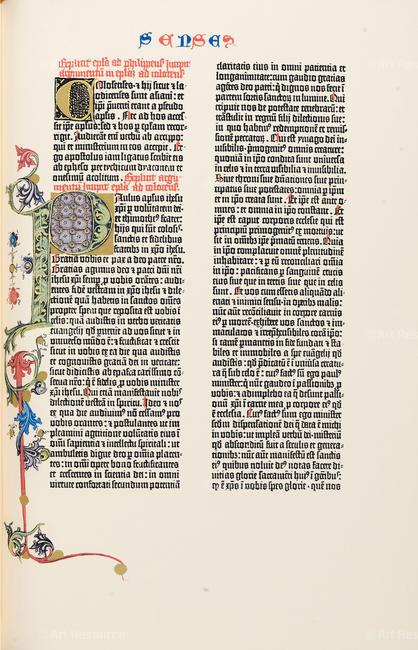 SENSES
Explicit epla ad philippenses Incipit
argumentum in eplam ad colocenses
Colocenses et hij sicut et la
odicenses sunt asiani: et
ipi pventi erant a pseudo
aplis. Nec ad hos acces
sit ipe aplus: sed et hos p eplam recor-
rigit. Audierant enim verbu ab accippo:
qui et ministerium in eos accepit. Er-
go apostolus iam ligatus scribit eis
ab epheso per tychicum dyaconem et
onesimu acolitum. Explicit argu
mentu Incipit epla ad colocenses.
Paulus aplus ihesu
xpi p voluntatem dei:
et thimotheus frater:
hijs qui sut colosis
sanctis et fidelibus
fratribus in xpo ihesu.
Gratia vobis et pax a deo patre nro.
Gratias agimus deo et patri dni nri
ihesu xpi semp p vobis orates: audi-
entes fide vestram in xpo ihesu et dile-
ctione qua habetis in sanctos omnes
propter spem que reposita est vobis i
celis: qua audistis in verbo veritatis
euangelij qd pvenit ad vos sicut et in
universo mudo e: et fructificat et crescit
sicut in vobis ex ea die qua audistis
et cognovistis gratia dei in veritate:
sicut didicistis ab epafra carissimo co-
servo nro: q e fidelis p vobis minister
xpi ihesu. Qui etia manifestavit nobis
dilectione vestra in spiritu. Ideo et nos
ex qua die audivim no cessam pro
vobis orantes: et postulantes ut im
pleamini agnitione voluntatis eius i
omi sapientia et intellectu spirituali: ut
ambuletis digne deo p omia placen-
tes: in omi opere bono fructificantes
et crescentes in scientia dei: in omni
virtute confortati secundum potentia
claritatis eius in omni patientia et
longanimitate: cum gaudio gratias
agetes deo patri: q dignos nos fecit i
partem sortis sanctoru in lumine. Qui
eripuit nos de potestate tenebraru: et
trastulit in regnu filij dilectionis sue:
in quo habem redemptione et remis-
sione peccatoru. Qui est ymago dei in-
visibilis: pmogenit omnis creature:
quonia in ipo condita sunt universa
in celis et in terra visibilia et invisibilia.
Sive throni sive dnationes sive prin-
cipatus sive potestates: omnia p ipm
et in ipo creata sunt. Et ipe est ante o-
mnes: et omnia in ipo constant. Et
ipe est caput corporis ecclesie qui est
principiu primogenit ex mortuis: ut
sit in omib ipe primatu tenens. Quia
in ipo complacuit omne plenitudine
inhabitare: et p eu reconciliari omia
in ipo: pacificans p sanguine crucis
eius sive que in terris sive que in celis
sunt. Et vos cum essetis aliquado ali-
enati et inimici sensu in opib malis:
nuc aut recociliavit in corpore carnis
ei p morte exhibere vos sanctos et im-
maculatos et irreprehesibiles cora ipo:
si tame pmanetis in fide fundati et sta-
biles et immobiles a spe euagelij qd
audistis: qd pdicatu e i universa creatu-
ra q sub celo e: cui fact su ego paul
minister: q nuc gaudeo i passionib p
vobis: et adimpleo ea q desunt passio-
num xpi i carne mea p corpore ei qd
e ecclesia. Cui fact sum ego minister
scdm dispensatione dei q data e michi
in vobis: ut implea verbu dei: misteriu
qd absconditu fuit a seculis et genera-
tionib: nuc aut manifestu est sanctis
ei quibus voluit de notas facere di-
vitias glorie sacramti hui i getib:
qd e xps i vobis spes glorie: que nos